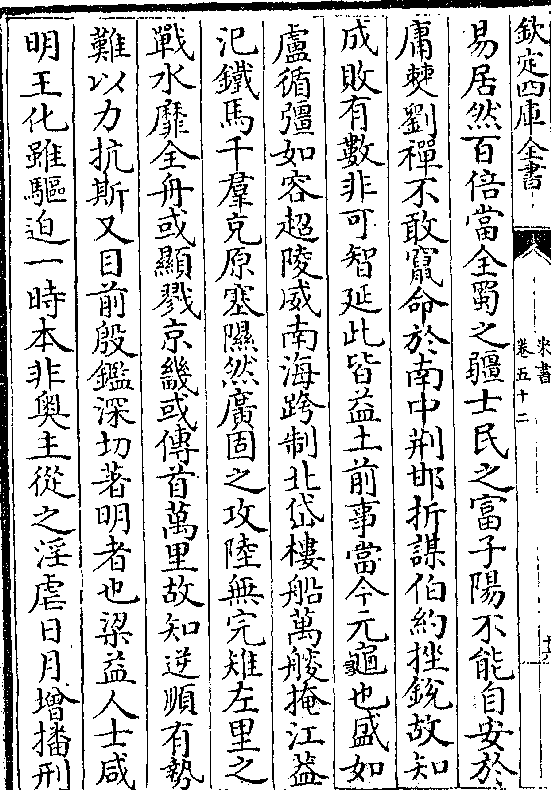 欽定四庫全書
宋書
卷五十二
易居然百倍當全蜀之疆士民之富子陽不能自安於
庸僰劉禪不敢竄命於南中荆邯折謀伯約挫銳故知
成敗有數非可智延此皆益土前事當今元龜也盛如
盧循彊如容超陵威南海跨制北岱樓船萬艘掩江蓋
汜鐵馬千羣充原塞隰然廣固之攻陸無完雉左里之
戰水靡全舟或顯戮京畿或傳首萬里故知逆順有勢
難以力抗斯又目前殷鑑深切著明者也梁益人士咸
明王化雖驅迫一時本非奥主從之淫虐日月增播刑